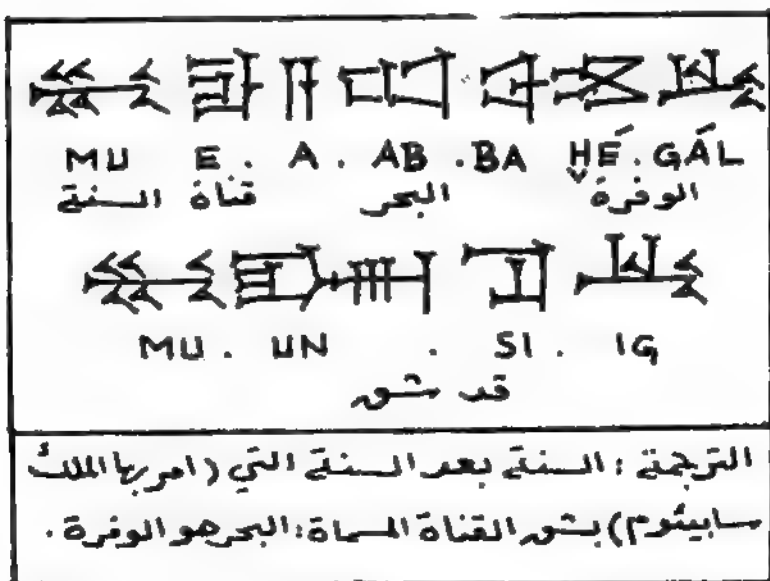 MU E . A . AB . BA ḪÉ . GÁL
السنة قناة البحر الوفرة
MU . UN . SI . IG
قد شق
الترجمة : السنة بعد السنة التي (امر بها الملك
سابيئوم) بشق القناة المسماة : البحر هو الوفرة .